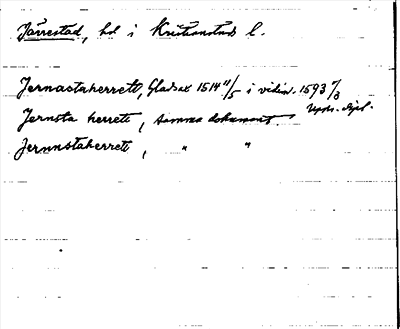 Järrestad, hd i Kristianstads l.
Jernastaherrett, Gladsax 1514 11/5 i vidim. 1593 7/3
Upps. dipl.
Jernsta herrett, samma dokument.
Jernnstaherrett, " "